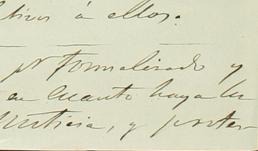 tivos á ellos.
pr formalizado y
en cuanto haya lu
Justicia, y